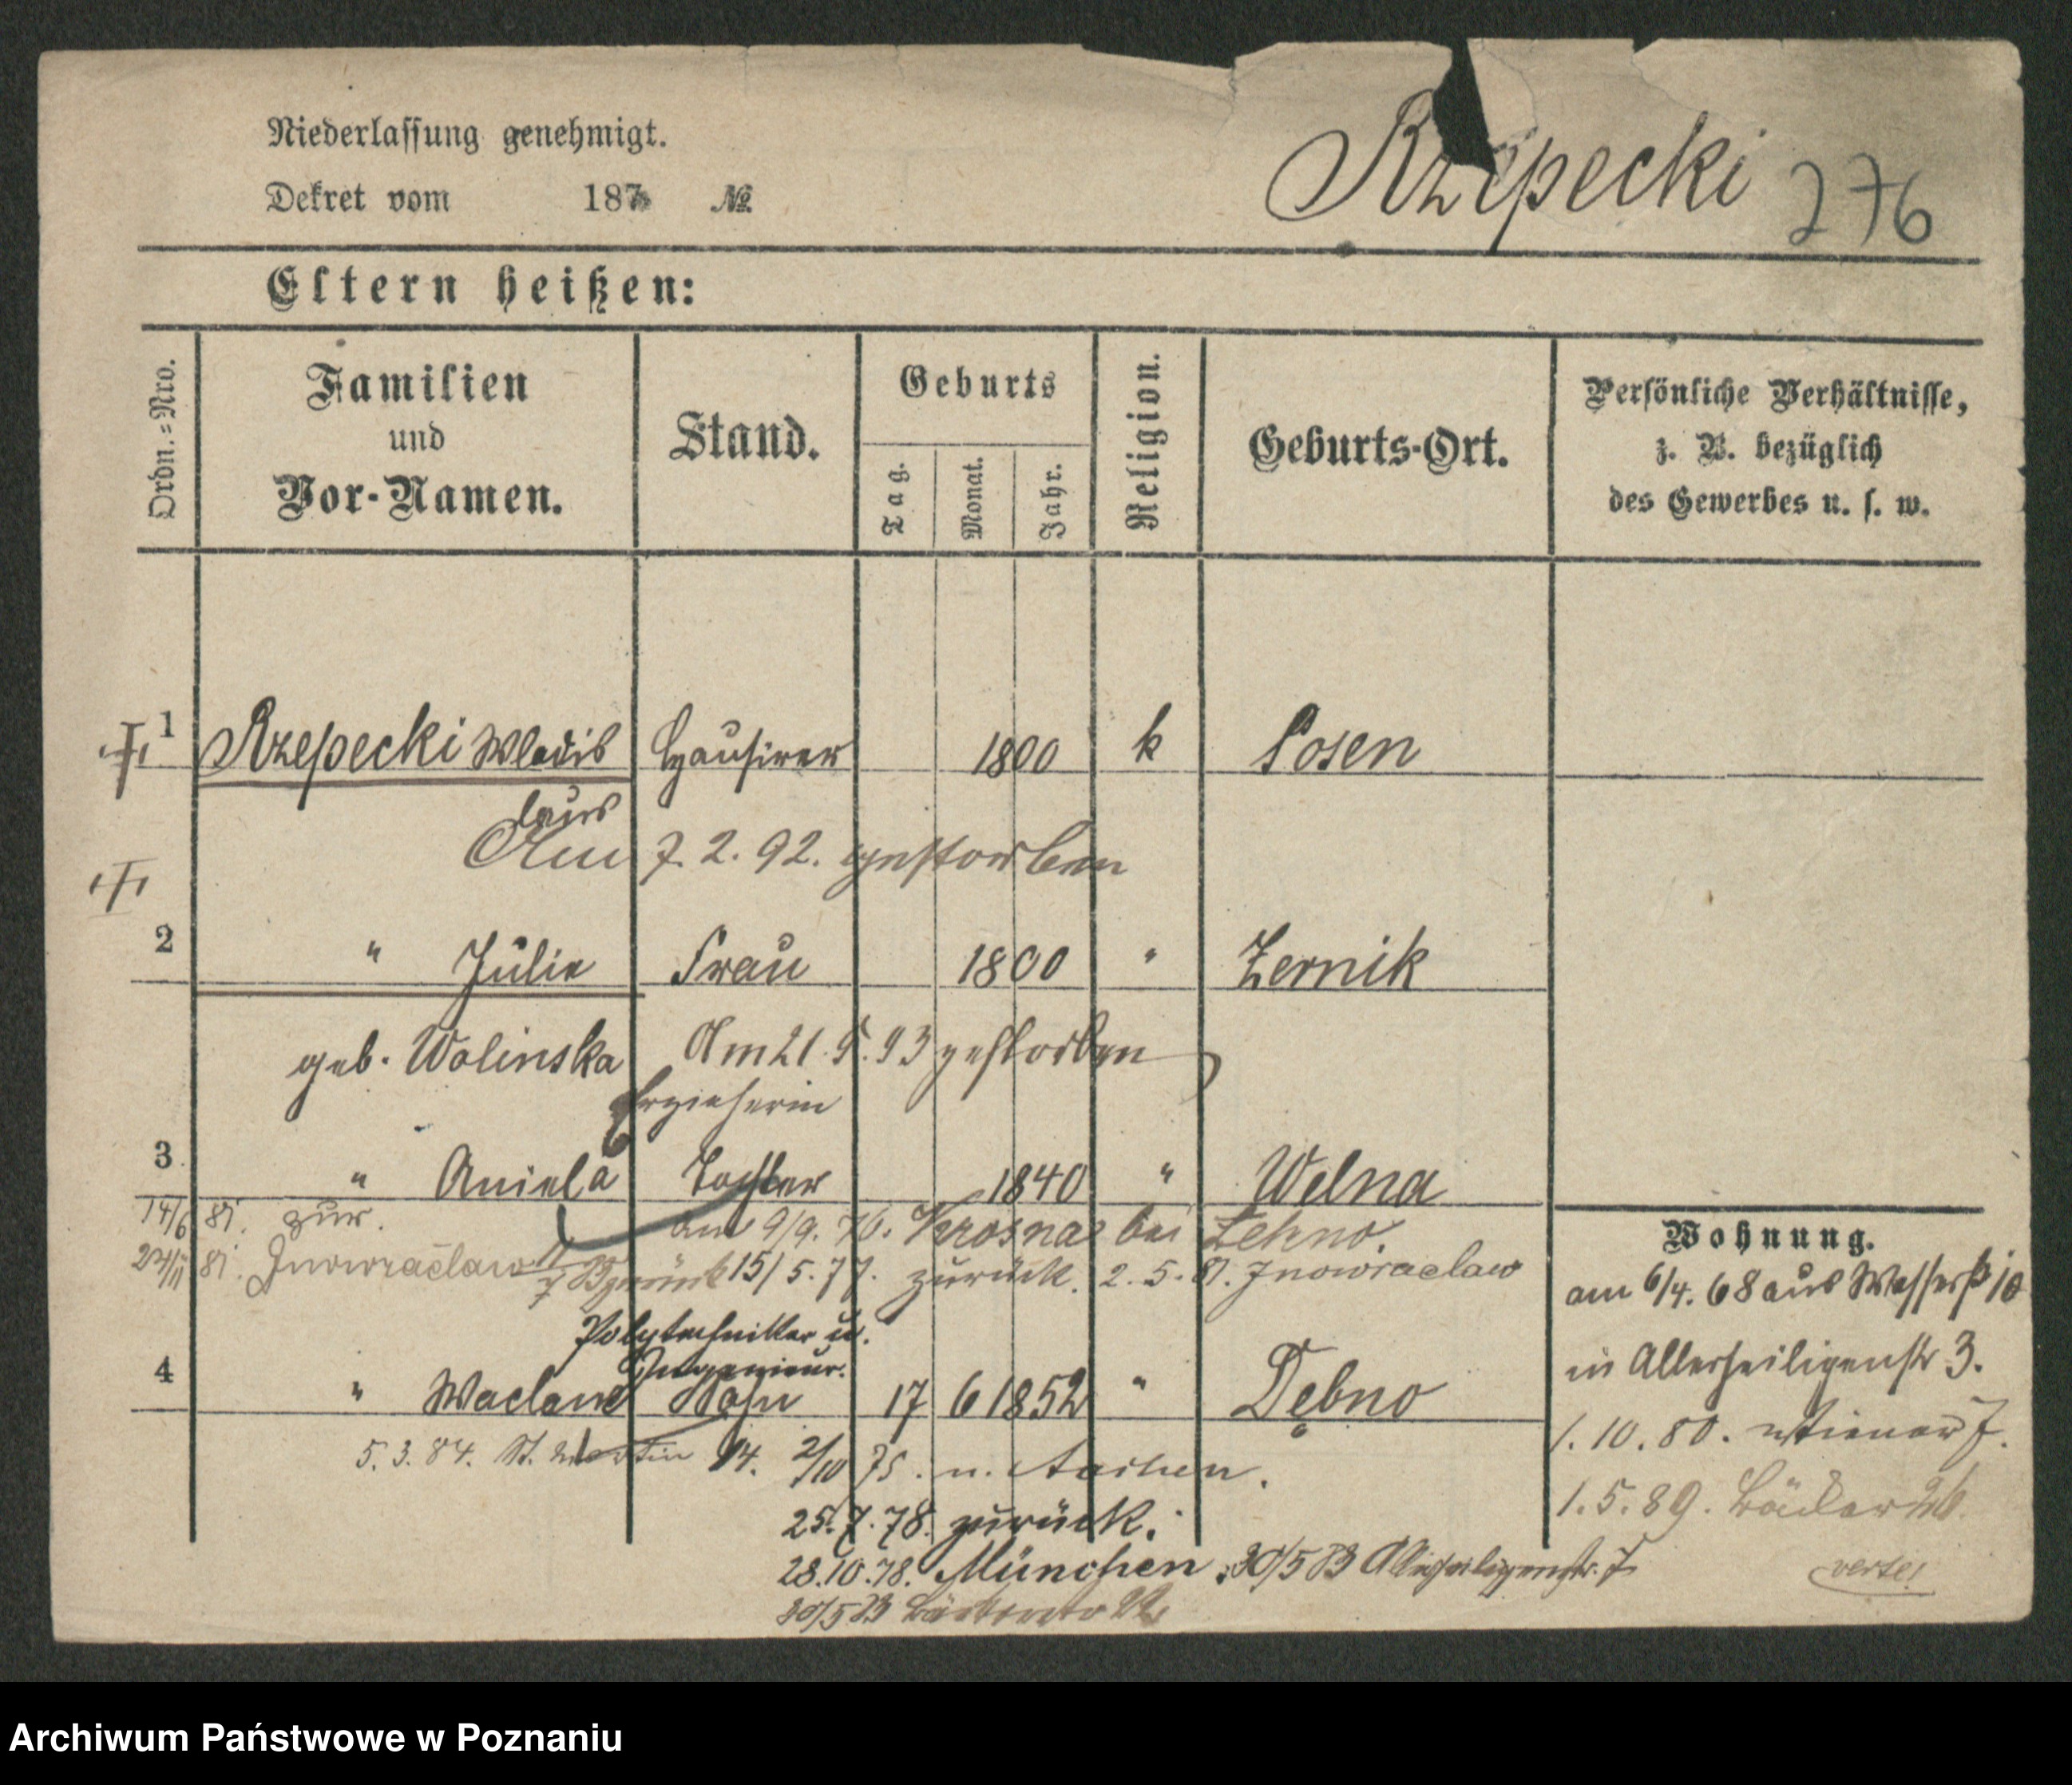 Niederlassung genehmigt.
Rzepecki 276
Dekret vom 187 №
Eltern heißen:
Ordn.=Nro.
Familien
und
Vor-Namen.
Stand.
Geburts
Tag.
Monat.
Jahr.
Religion.
Geburts-Ort.
Persönliche Verhältnisse,
z. B. bezüglich
des Gewerbes u. s. w.
1 Rzepecki Wladis Hausirer 1800 k Posen
laus
Am 7. 2. 92. gestorben
2 " Julie Frau 1800 " Zernik
geb. Wolinska Am 21. 5. 93 gestorben
Erzieherin
3 " Aniela Tochter 1840 " Welna
14/6 81. zur. am 9/9. 76. Krosna bei
81. Inowraclaw zurück 15/5. 77. zurück. 2. 5. 81. Inowraclaw
Polytechniker u.
Ingenieur.
4 " Waclaw Sohn 17 6 1852 " Dębno
5. 3. 84. St. Martin 14. 2/10 75. n. Aachen.
25. 7. 78. zurück.
28. 10. 78. München. 30/5 83 Allerheiligenstr. 7
30/5 83
Wohnung.
am 6/4. 68 aus Wasserstr 10
in Allerheiligenstr 3.
1. 10. 80. 7.
1. 5. 89. Bäcker 26.
verte!
Archiwum Państwowe w Poznaniu